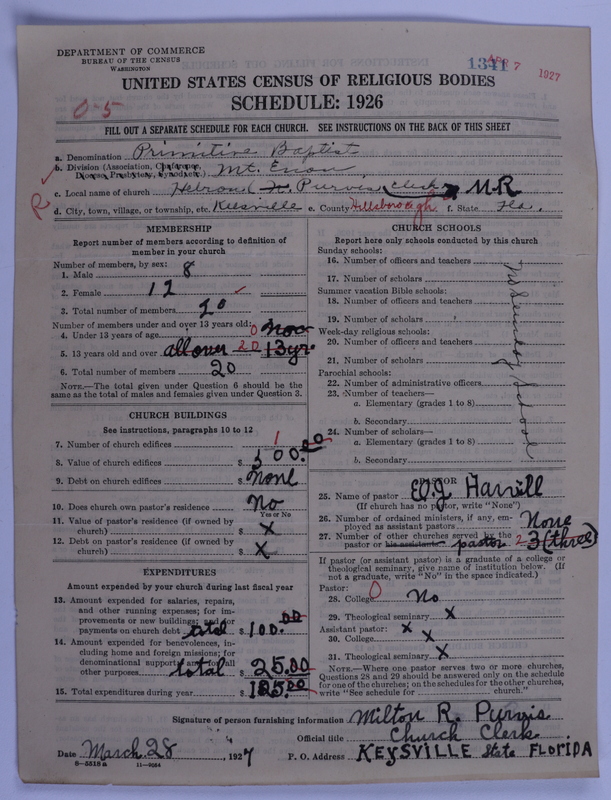 DEPARTMENT OF COMMERCE
BUREAU OF THE CENSUS
WASHINGTON
1311
APR 7 1927
UNITED STATES CENSUS OF RELIGIOUS BODIES
SCHEDULE: 1926
0-5
FILL OUT A SEPARATE SCHEDULE FOR EACH CHURCH. SEE INSTRUCTIONS ON THE BACK OF THIS SHEET
a. Denomination Primitive Baptist
b. Division (Association, Conference, Diocese, Presbytery, Synod, etc.) Mt. Enon
c. Local name of church Hebron Purvis, Clerk MR
R
d. City, town, village, or township, etc. Keysville e. County Hillsborough f. State Fla.
MEMBERSHIP
Report number of members according to definition of
member in your church
Number of members, by sex:
1. Male 8
2. Female 12
3. Total number of members 20
Number of members under and over 13 years old:
4. Under 13 years of age 0 Non
5. 13 years old and over all over 20 13 yr.
6. Total number of members 20
NOTE.—The total given under Question 6 should be the
same as the total of males and females given under Question 3.
CHURCH BUILDINGS
See instructions, paragraphs 10 to 12
7. Number of church edifices 1
8. Value of church edifices $ 300.00
9. Debt on church edifices $ None
10. Does church own pastor's residence No
Yes or No
11. Value of pastor's residence (if owned by
church) $ X
12. Debt on pastor's residence (if owned by
church) $ X
EXPENDITURES
Amount expended by your church during last fiscal year
13. Amount expended for salaries, repairs,
and other running expenses; for im-
provements or new buildings; and for
payments on church debt total $ 100.00
14. Amount expended for benevolences, in-
cluding home and foreign missions; for
denominational support; and for all
other purposes total $ 25.00
15. Total expenditures during year $ 125.00
CHURCH SCHOOLS
Report here only schools conducted by this church
Sunday schools:
16. Number of officers and teachers
17. Number of scholars
Summer vacation Bible schools:
18. Number of officers and teachers
19. Number of scholars
Week-day religious schools:
20. Number of officers and teachers
21. Number of scholars
Parochial schools:
22. Number of administrative officers
23. Number of teachers—
a. Elementary (grades 1 to 8)
b. Secondary
24. Number of scholars—
a. Elementary (grades 1 to 8)
b. Secondary
No Sunday School
PASTOR
25. Name of pastor Harrell
(If church has no pastor, write "None")
26. Number of ordained ministers, if any, em-
ployed as assistant pastors None
27. Number of other churches served by the
pastor or his assistant pastor 2 3 (three)
If pastor (or assistant pastor) is a graduate of a college or
theological seminary, give name of institution below. (If
not a graduate, write "No" in the space indicated.)
Pastor:
28. College 0 No
29. Theological seminary X
Assistant pastor: X
30. College X
31. Theological seminary X
NOTE.—Where one pastor serves two or more churches,
Questions 28 and 29 should be answered only on the schedule
for one of the churches; on the schedules for the other churches,
write "See schedule for church."
Signature of person furnishing information Milton R. Purvis
Official title Church Clerk
Date March 28, 1927 P. O. Address KEYSVILLE State FLORIDA
8-5518a 11-9084